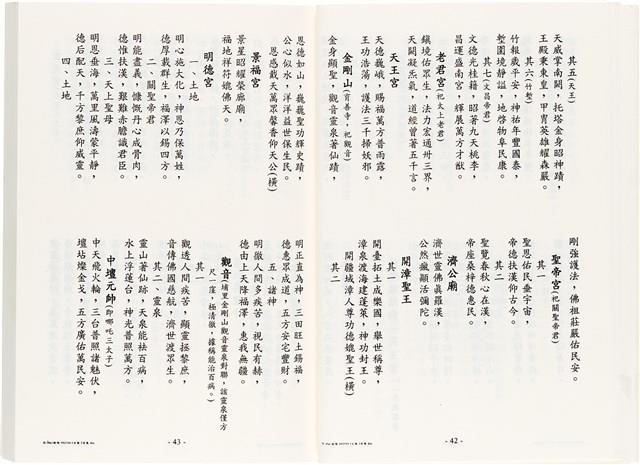 其五(天王)
天威掌南關,托塔金身昭神蹟,
王殿秉東皇,甲冑英雄耀森嚴。
其六(竹塹)
竹報歲平安,神祐年豐國泰,
塹圍境靜謐,地啓物阜民康。
其七(文昌帝君)
文德光桂籍,昭著九天桃李,
昌運盛南宮,輝展萬方才猷。
老君宮(祀太上老君)
鎮境佑眾生,法力宏通卅三界,
天闕凝炁氣,道經曾著五千言。
天王宮
天德巍峨,賜福萬方普雨露,
王功浩蕩,護法三千掃妖邪。
金剛山(育善寺,祀觀音)
金身顯聖,觀音靈泉著仙蹟,
剛強護法,佛祖莊嚴佑民安。
聖帝宮(祀關聖帝君)
其一
聖恩佑民垂宇宙,
帝德扶漢仰古今。
其二
聖覽春秋心在漢,
帝座桑梓德惠民。
濟公廟
濟世靈佛眞羅漢,
公然瘋顯活彌陀。
開漳聖王
其一
開臺拓土成樂國,舉世稱尊,
漳泉渡海建蓬萊,神功封王。
其二
開疆域漳人尊功德媲聖王(橫)
- 42 -
恩德如山,巍巍聖功輝史蹟,
公心似水,洋洋益世保生民。
恩感戴天萬眾馨香仰天公(橫)
景福宮
景星昭耀榮廊廟,
福地祥符媲佛天。
明德宮
一、土地
明心施大化,神恩乃保萬姓,
德厚載群生,福澤以錫四方。
二、關聖帝君
明能盡義,慷慨丹心成骨肉,
德惟扶漢,艱難赤膽識君臣。
三、天上聖母
明恩垂海,萬里風濤蒙平靜,
德后配天,千方黎庶仰威靈。
四、土地
明正直為神,三田旺土錫福,
德惠眾成道,五方安宅豐財。
五、諸神
明徹人間多疾苦,視民有赫,
德由上天降福澤,惠我無疆。
觀音(埔里金剛山觀音靈泉對聯,該靈泉僅方尺一窪,極清徹,據稱能治百病。)
其一
觀透人間疾苦,顯靈拯黎庶,
音傳佛國慈航,濟世渡眾生。
其二、靈泉
靈山著仙跡,天泉能祛百病,
水上浮蓮台,神光普照萬方。
中壇元帥(即哪吒三太子)
中天飛火輪,三台普照諸魅伏,
壇坫燦金戈,五方廣佑萬民安。
- 43 -